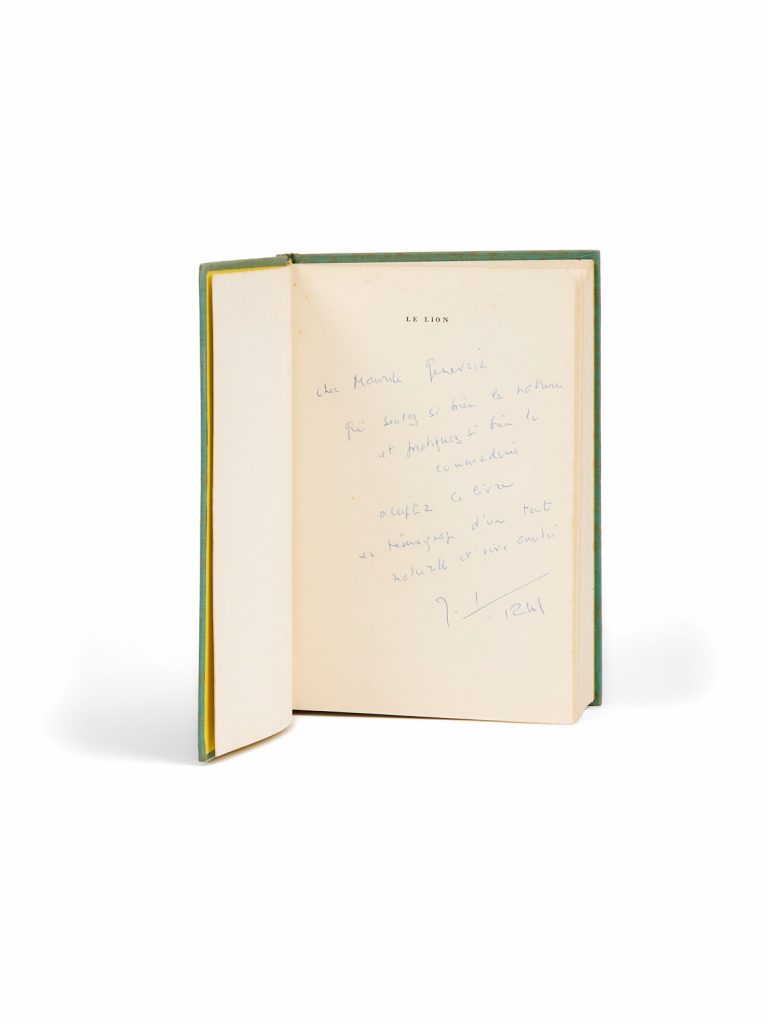 LE LION
cher Maurice Genevoix
qui sentez si bien la nature
et pratiquez si bien la
camaraderie
acceptez ce livre
en témoignage d'une toute
naturelle et vive amitié
J.